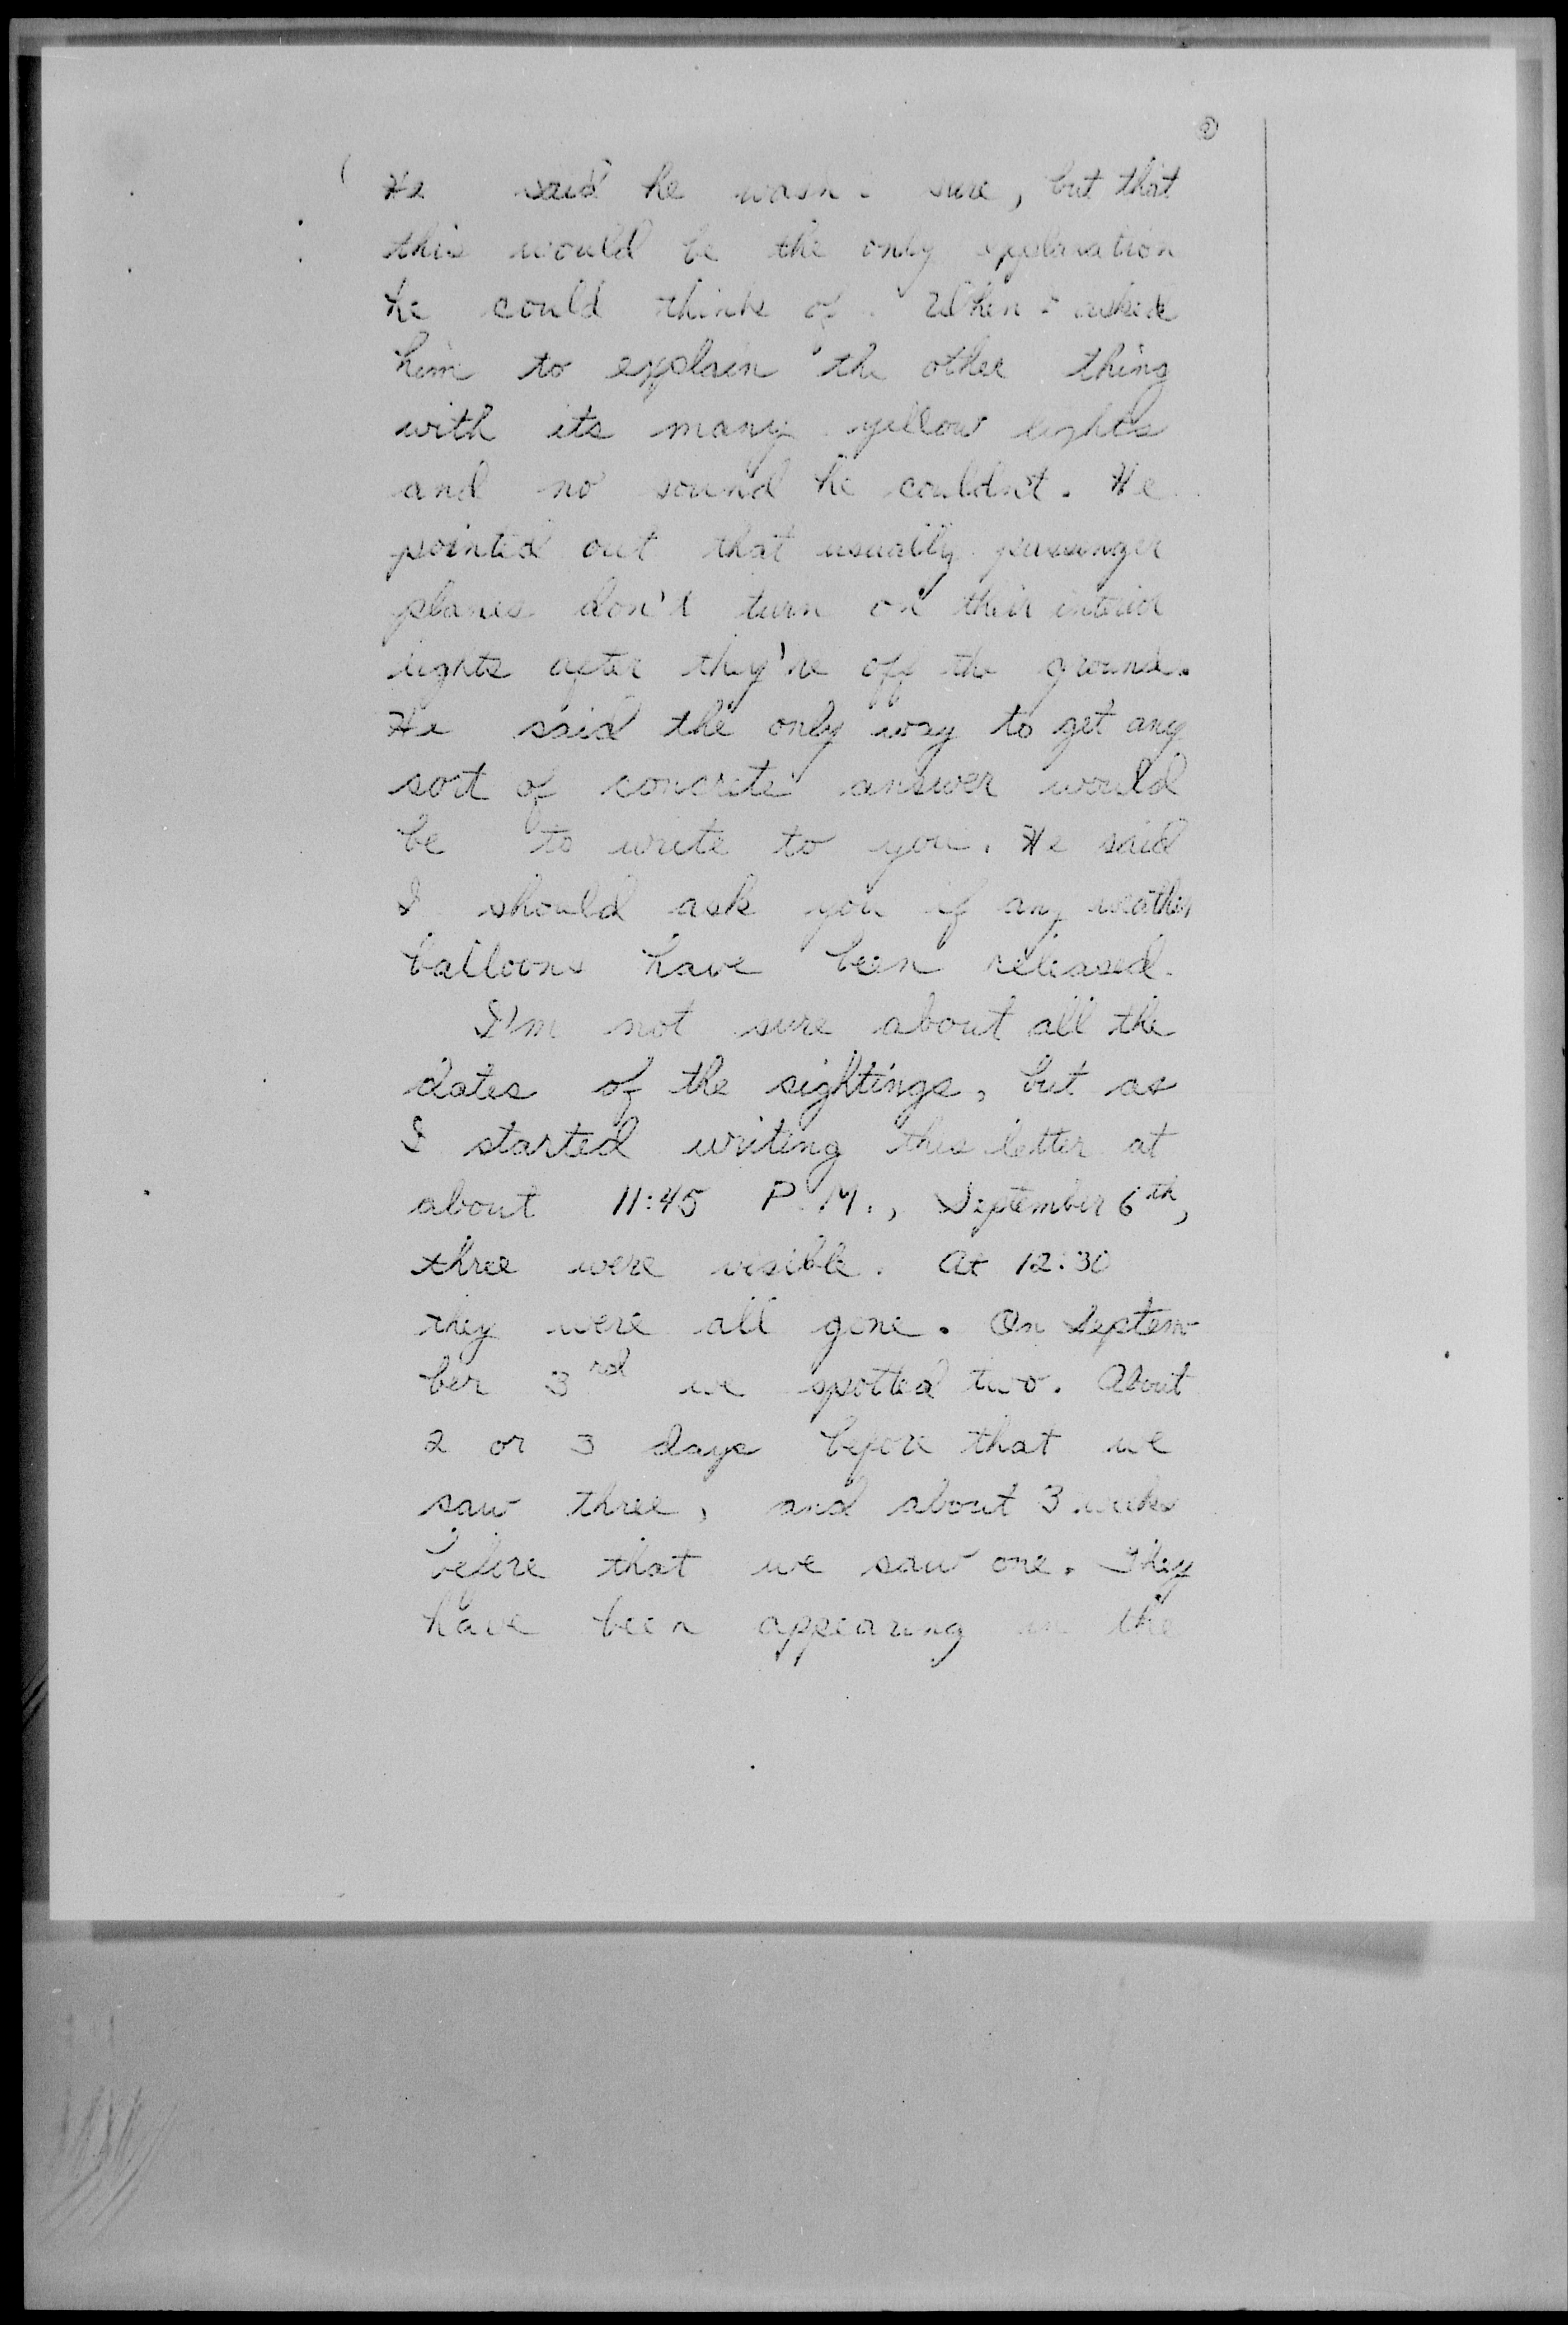 He said he wasn't sure, but that
this would be the only explanation
he could think of. When I asked
him to explain the other thing
with its many yellow lights
and no sound he couldn't. He
pointed out that usually passenger
planes don't turn on their interior
lights after they're off the ground.
He said the only way to get any
sort of concrete answer would
be to write to you. He said
I should ask you if any weather
balloons have been released.
I'm not sure about all the
dates of the sightings, but as
I started writing this letter at
about 11:45 P.M., September 6th,
three were visible. At 12:30
they were all gone. On Septem
ber 3rd we spotted two. About
2 or 3 days before that we
saw three, and about 3 weeks
before that we saw one. They
have been appearing in the